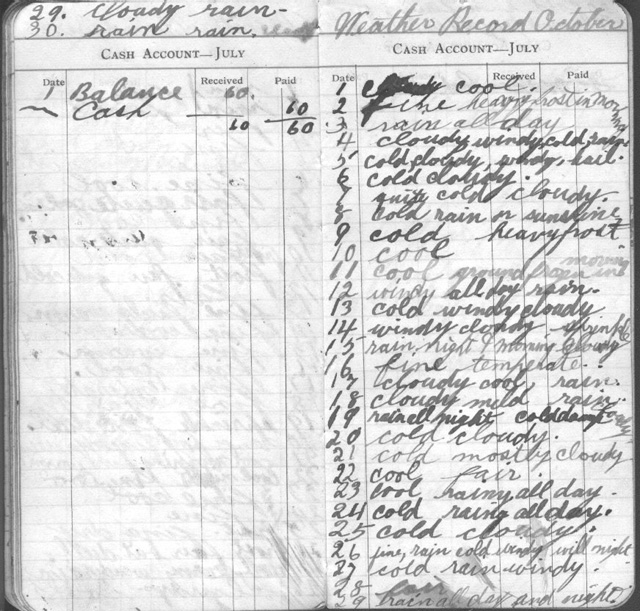 29. cloudy rain-
30. rain rain.
CASH ACCOUNT—JULY
Date Received Paid
1 Balance 60.
Cash 60
60 60
Weather Record October
CASH ACCOUNT—JULY
Date Received Paid
1 cool.
2 fine heavy frost in morning
3 rain all day
4 cloudy windy cold, rain
5 cold cloudy, windy, hail.
6 cold cloudy.
7 quite cold cloudy.
8 cold rain or sunshine
9 cold heavy frost
10 cool
11 cool ground in morning
12 windy all day rain.
13 cold windy cloudy
14 windy cloudy sprinkle
15 rain, night & morning cloudy
16 fine temperate.
17 cloudy cool rain.
18 cloudy mild rain.
19 rain all night cold damp
20 cold cloudy.
21 cold mostly cloudy
22 cool fair.
23 cool rainy all day.
24 cold rainy all day.
25 cold cloudy.
26 fine, rain cold windy will night
27 cold rain windy.
28
29 rain all day and night.